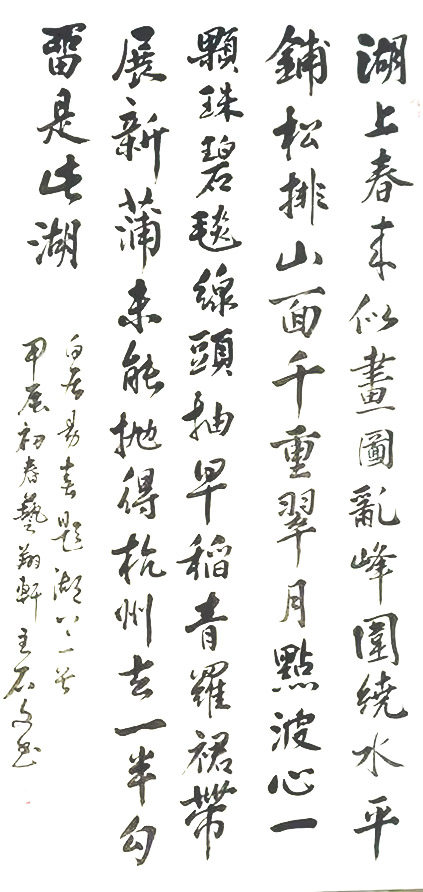 湖上春来似畫圖亂峰圍繞水平
鋪松排山面千重翠月點波心一
顆珠碧毯線頭抽早稻青羅裙帶
展新蒲未能拋得杭州去一半勾
留是此湖
白居易春題湖上一首
甲辰初春藝翔軒主石文书